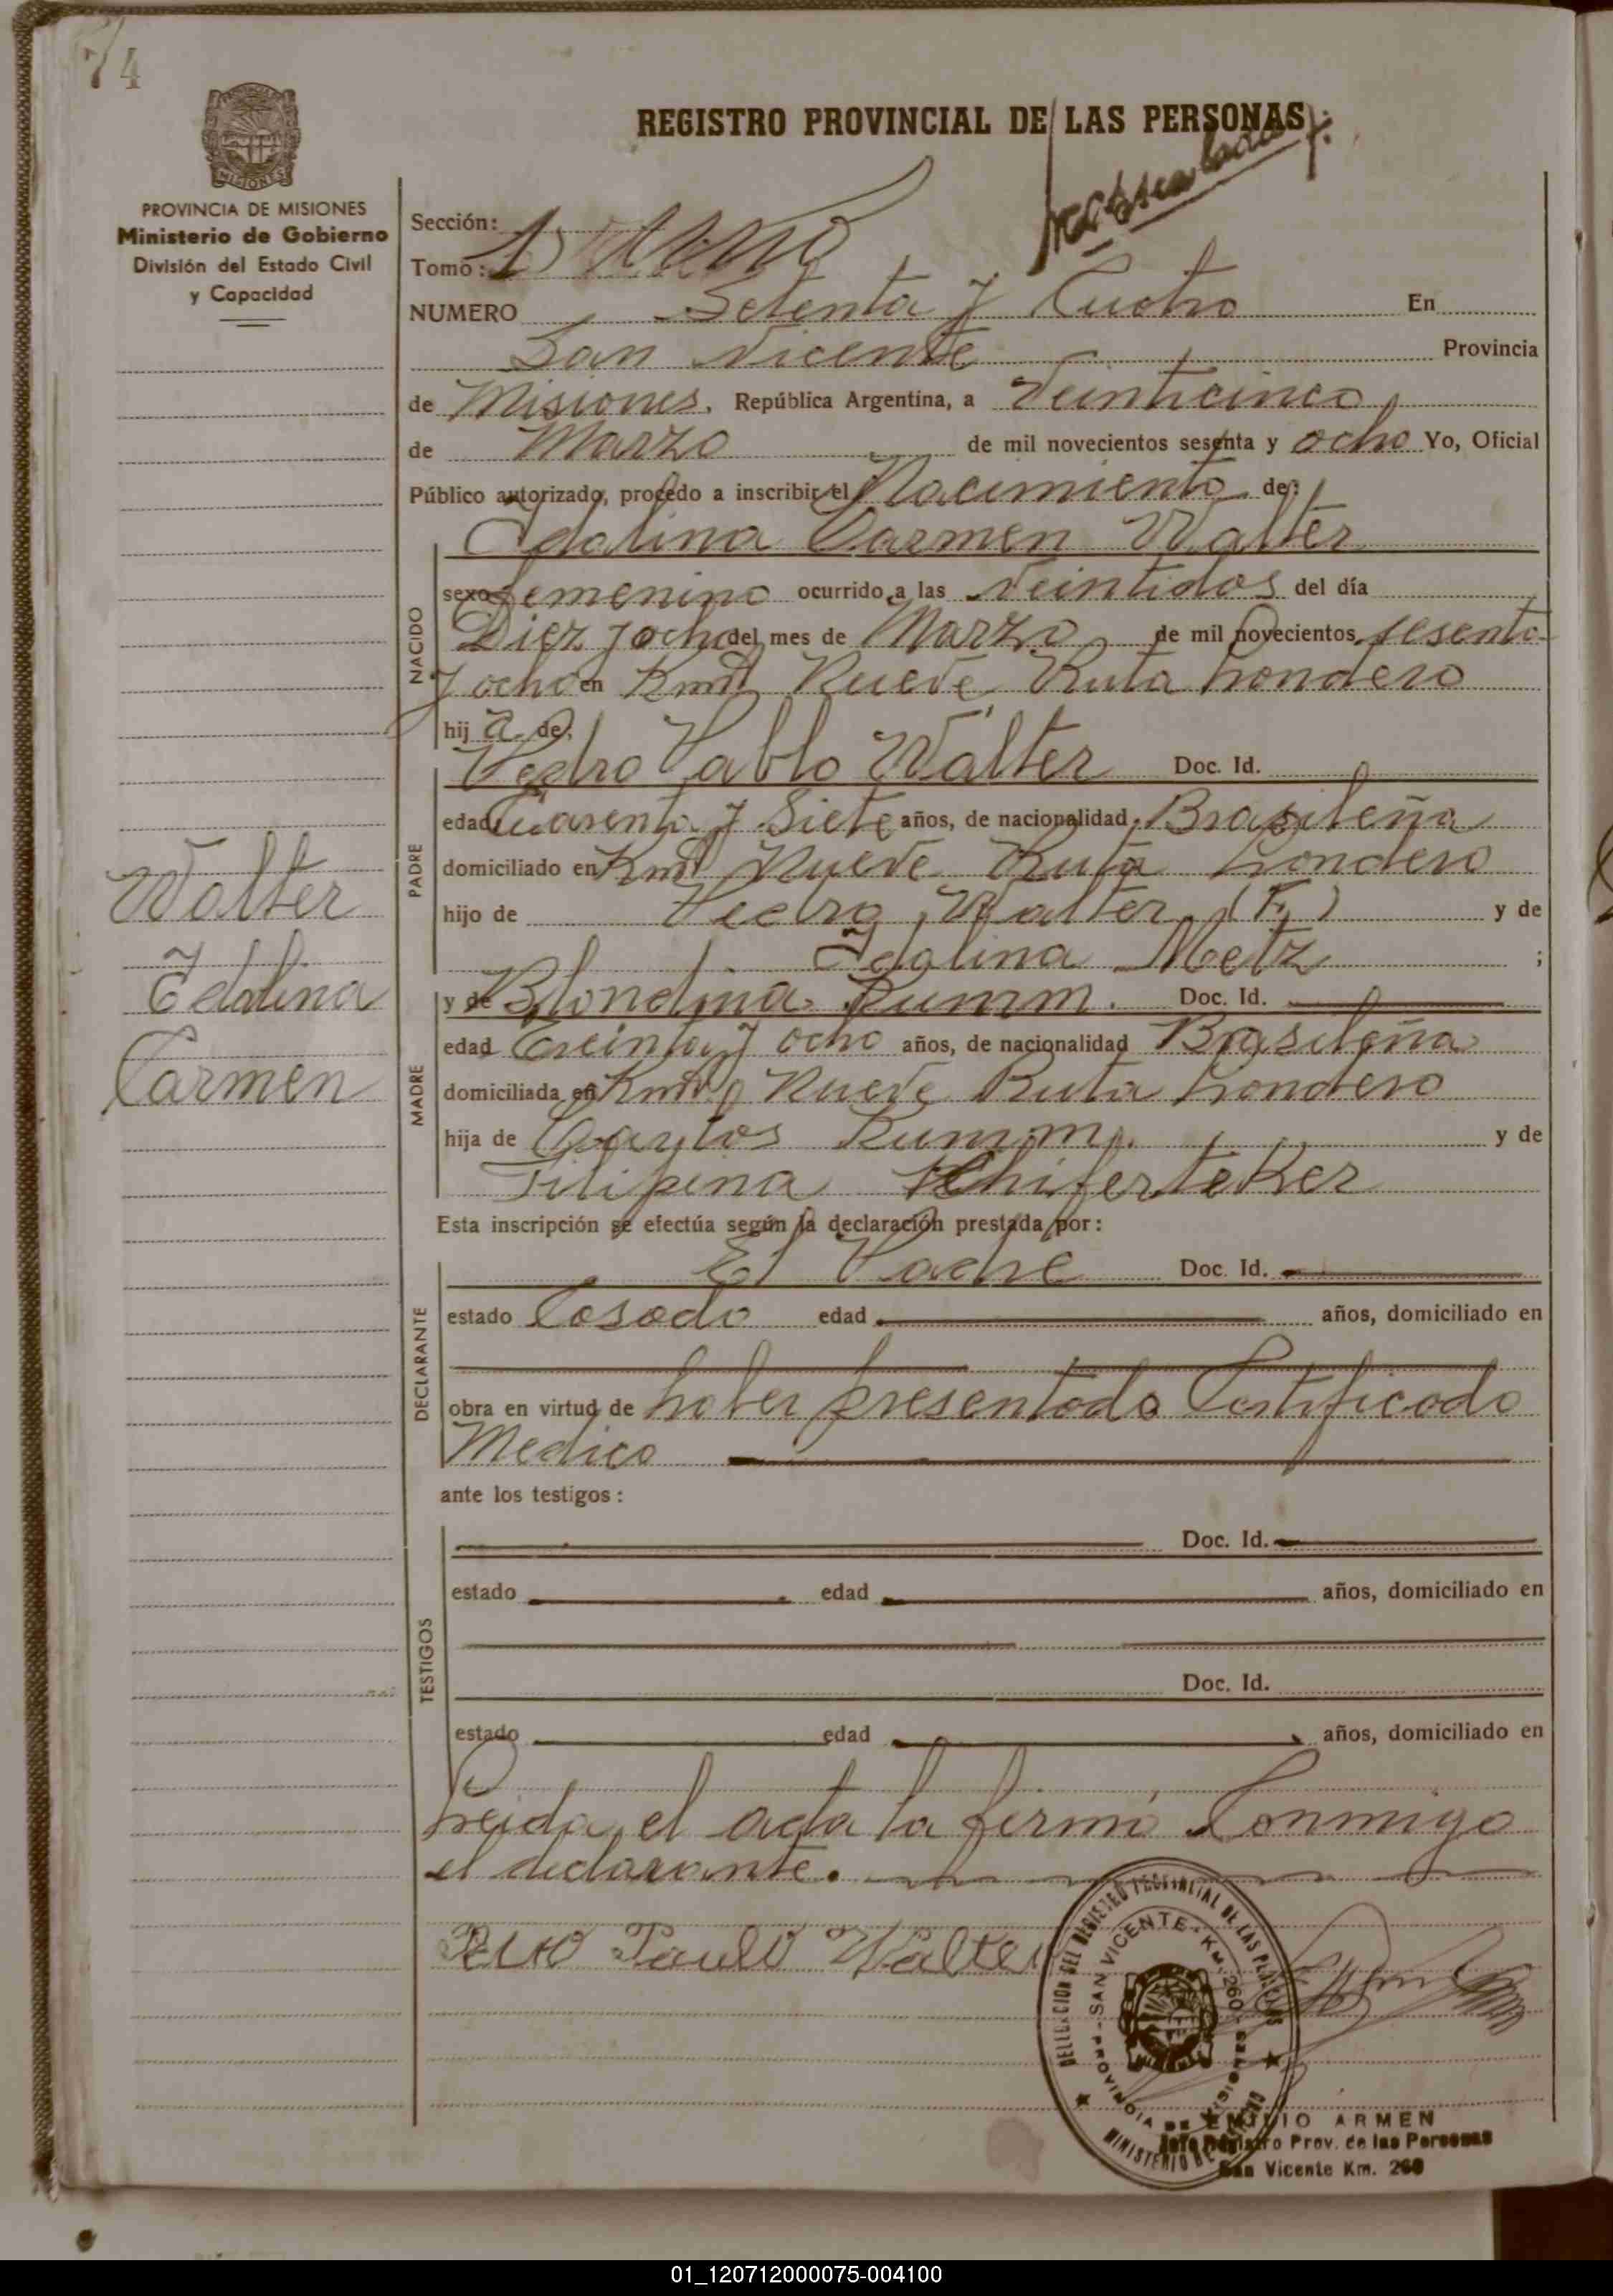 74
REGISTRO PROVINCIAL DE LAS PERSONAS
PROVINCIA DE MISIONES
Ministerio de Gobierno
División del Estado Civil
y Capacidad
Sección:
Tomo:
NUMERO Setenta y Cuatro En
San Vicente Provincia
de Misiones, República Argentina, a Veinticinco
de Marzo de mil novecientos sesenta y ocho Yo, Oficial
Público autorizado, procedo a inscribir el Nacimiento de:
Edalina Carmen Walter
NACIDO
sexo femenino ocurrido a las Veintidos del día
Diez y ocho del mes de Marzo de mil novecientos sesenta
y ocho en Kmt Nueve Ruta Londero
hij a de
PADRE
Pedro Pablo Walter Doc. Id.
edad Cuarenta y Siete años, de nacionalidad Brasileña
domiciliado en Kmt Nueve Ruta Londero
hijo de Pedro Walter (F) y de
Edalina Metz ;
MADRE
y de Blondina Rumm. Doc. Id.
edad Treinta y ocho años, de nacionalidad Brasileña
domiciliada en Kmt Nueve Ruta Londero
hija de Carlos Rumm. y de
Filipina Schiferteker
Walter
Edalina
Carmen
Esta inscripción se efectúa según la declaración prestada por:
DECLARANTE
El Padre Doc. Id.
estado Casado edad años, domiciliado en
obra en virtud de haber presentado Certificado
Medico
ante los testigos:
TESTIGOS
Doc. Id.
estado edad años, domiciliado en
Doc. Id.
estado edad años, domiciliado en
Leida el acta la firmó Conmigo
el declarante.
Pedro Paulo Walter
DELEGACION DEL REGISTRO PROVINCIAL DE LAS PERSONAS
SAN VICENTE - Km. 260
PROVINCIA DE MISIONES
MINISTERIO DE GOBIERNO
EMILIO ARMEN
Jefe Registro Prov. de las Personas
San Vicente Km. 260
01_120712000075-004100